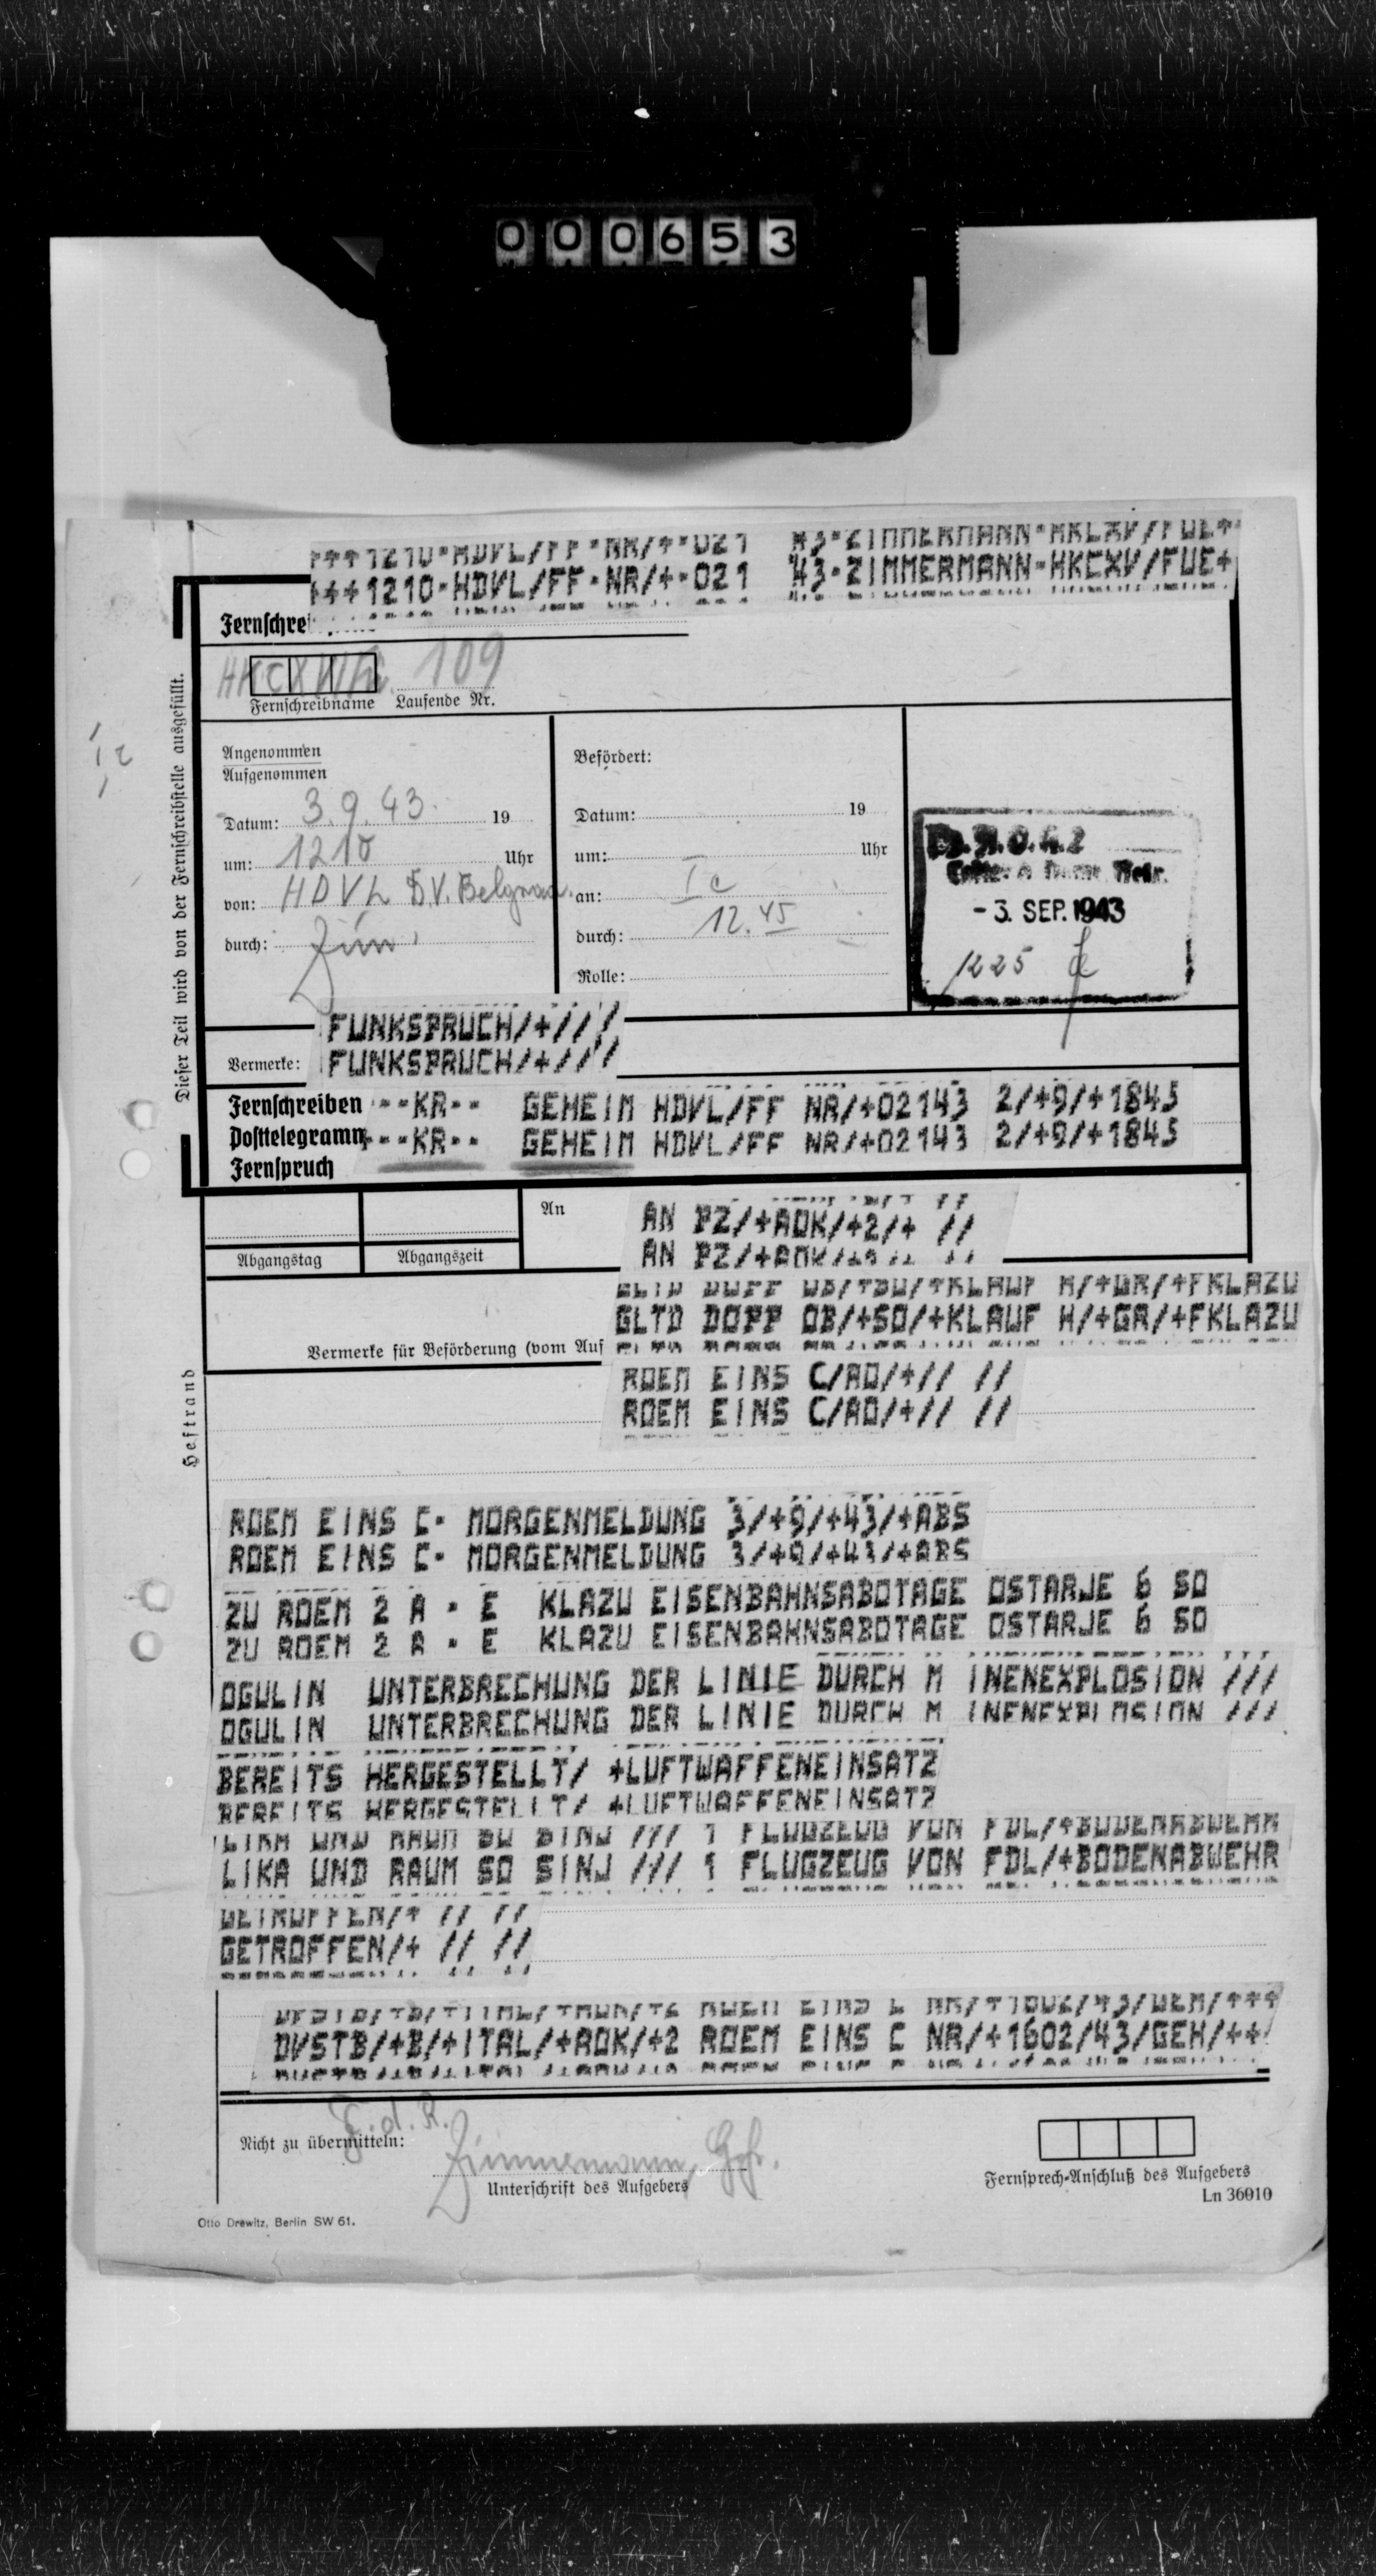 000653
+++1210-HDVL/FF-NR/+-021 43-ZIMMERMANN-HKCXV/FUE+
Fernschre
HKCXV/Fü 109
Fernschreibname Laufende Nr.
Dieser Teil wird von der Fernschreibstelle ausgefüllt.
Angenommen
Aufgenommen
Datum: 3.9.43. 19
um: 1210 Uhr
von: HDVL
durch: Zim
Befördert:
Datum: 19
um: Uhr
an: Ic
durch: 12.45
Rolle:
Pz.A.O.K.2
- 3. SEP. 1943
1225
FUNKSPRUCH/+///
Vermerke: FUNKSPRUCH/+///
Fernschreiben --KR-- GEHEIM HDVL/FF NR/+02143 2/+9/+1845
Posttelegramm --KR-- GEHEIM HDVL/FF NR/+02143 2/+9/+1845
Fernspruch
Abgangstag
Abgangszeit
An
AN PZ/+AOK/+2/+ //
AN PZ/+AOK/+2/+ //
GLTD DOPP OB/+SO/+KLAUF H/+GR/+FKLAZU
Vermerke für Beförderung (vom Auf
ROEM EINS C/AO/+// //
ROEM EINS C/AO/+// //
Heftrand
ROEM EINS C- MORGENMELDUNG 3/+9/+43/+ABS
ROEM EINS C- MORGENMELDUNG 3/+9/+43/+ABS
ZU ROEM 2 A - E KLAZU EISENBAHNSABOTAGE OSTARJE 6 SO
ZU ROEM 2 A - E KLAZU EISENBAHNSABOTAGE OSTARJE 6 SO
OGULIN UNTERBRECHUNG DER LINIE DURCH M INENEXPLOSION ///
OGULIN UNTERBRECHUNG DER LINIE DURCH M INENEXPLOSION ///
BEREITS HERGESTELLT/ +LUFTWAFFENEINSATZ
BEREITS HERGESTELLT/ +LUFTWAFFENEINSATZ
LIKA UND RAUM SO SINJ /// 1 FLUGZEUG VON FDL/+BODENABWEHR
GETROFFEN/+ // //
DVSTB/+B/+ITAL/+AOK/+2 ROEM EINS C NR/+1602/43/GEH/++
F.d.R.
Nicht zu übermitteln:
Zimmermann, Gefr.
Unterschrift des Aufgebers
Fernsprech-Anschluß des Aufgebers
Ln 36010
Otto Drewitz, Berlin SW 61.